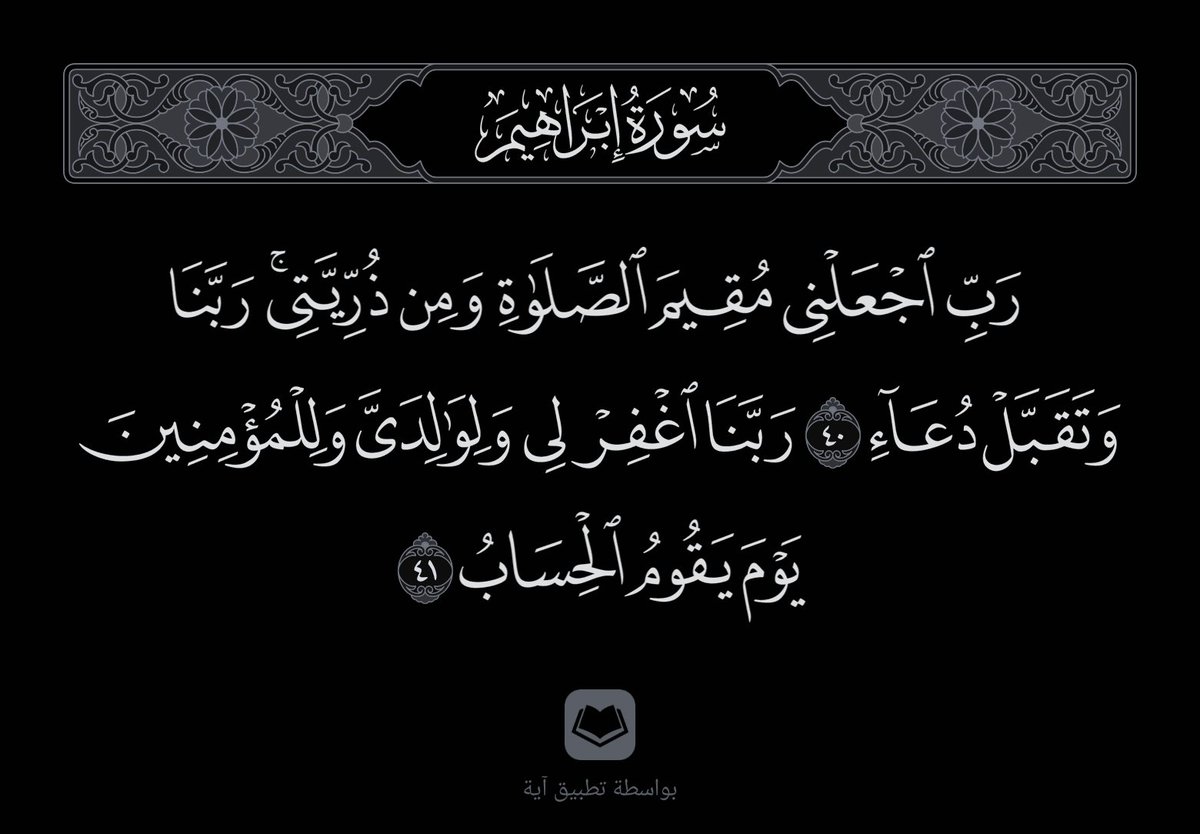 سُورَةُ إِبْرَاهِيمَ
رَبِّ ٱجْعَلْنِى مُقِيمَ ٱلصَّلَوٰةِ وَمِن ذُرِّيَّتِىۚ رَبَّنَا
وَتَقَبَّلْ دُعَآءِ ٤٠ رَبَّنَا ٱغْفِرْ لِى وَلِوَٰلِدَىَّ وَلِلْمُؤْمِنِينَ
يَوْمَ يَقُومُ ٱلْحِسَابُ ٤١
بواسطة تطبيق آية